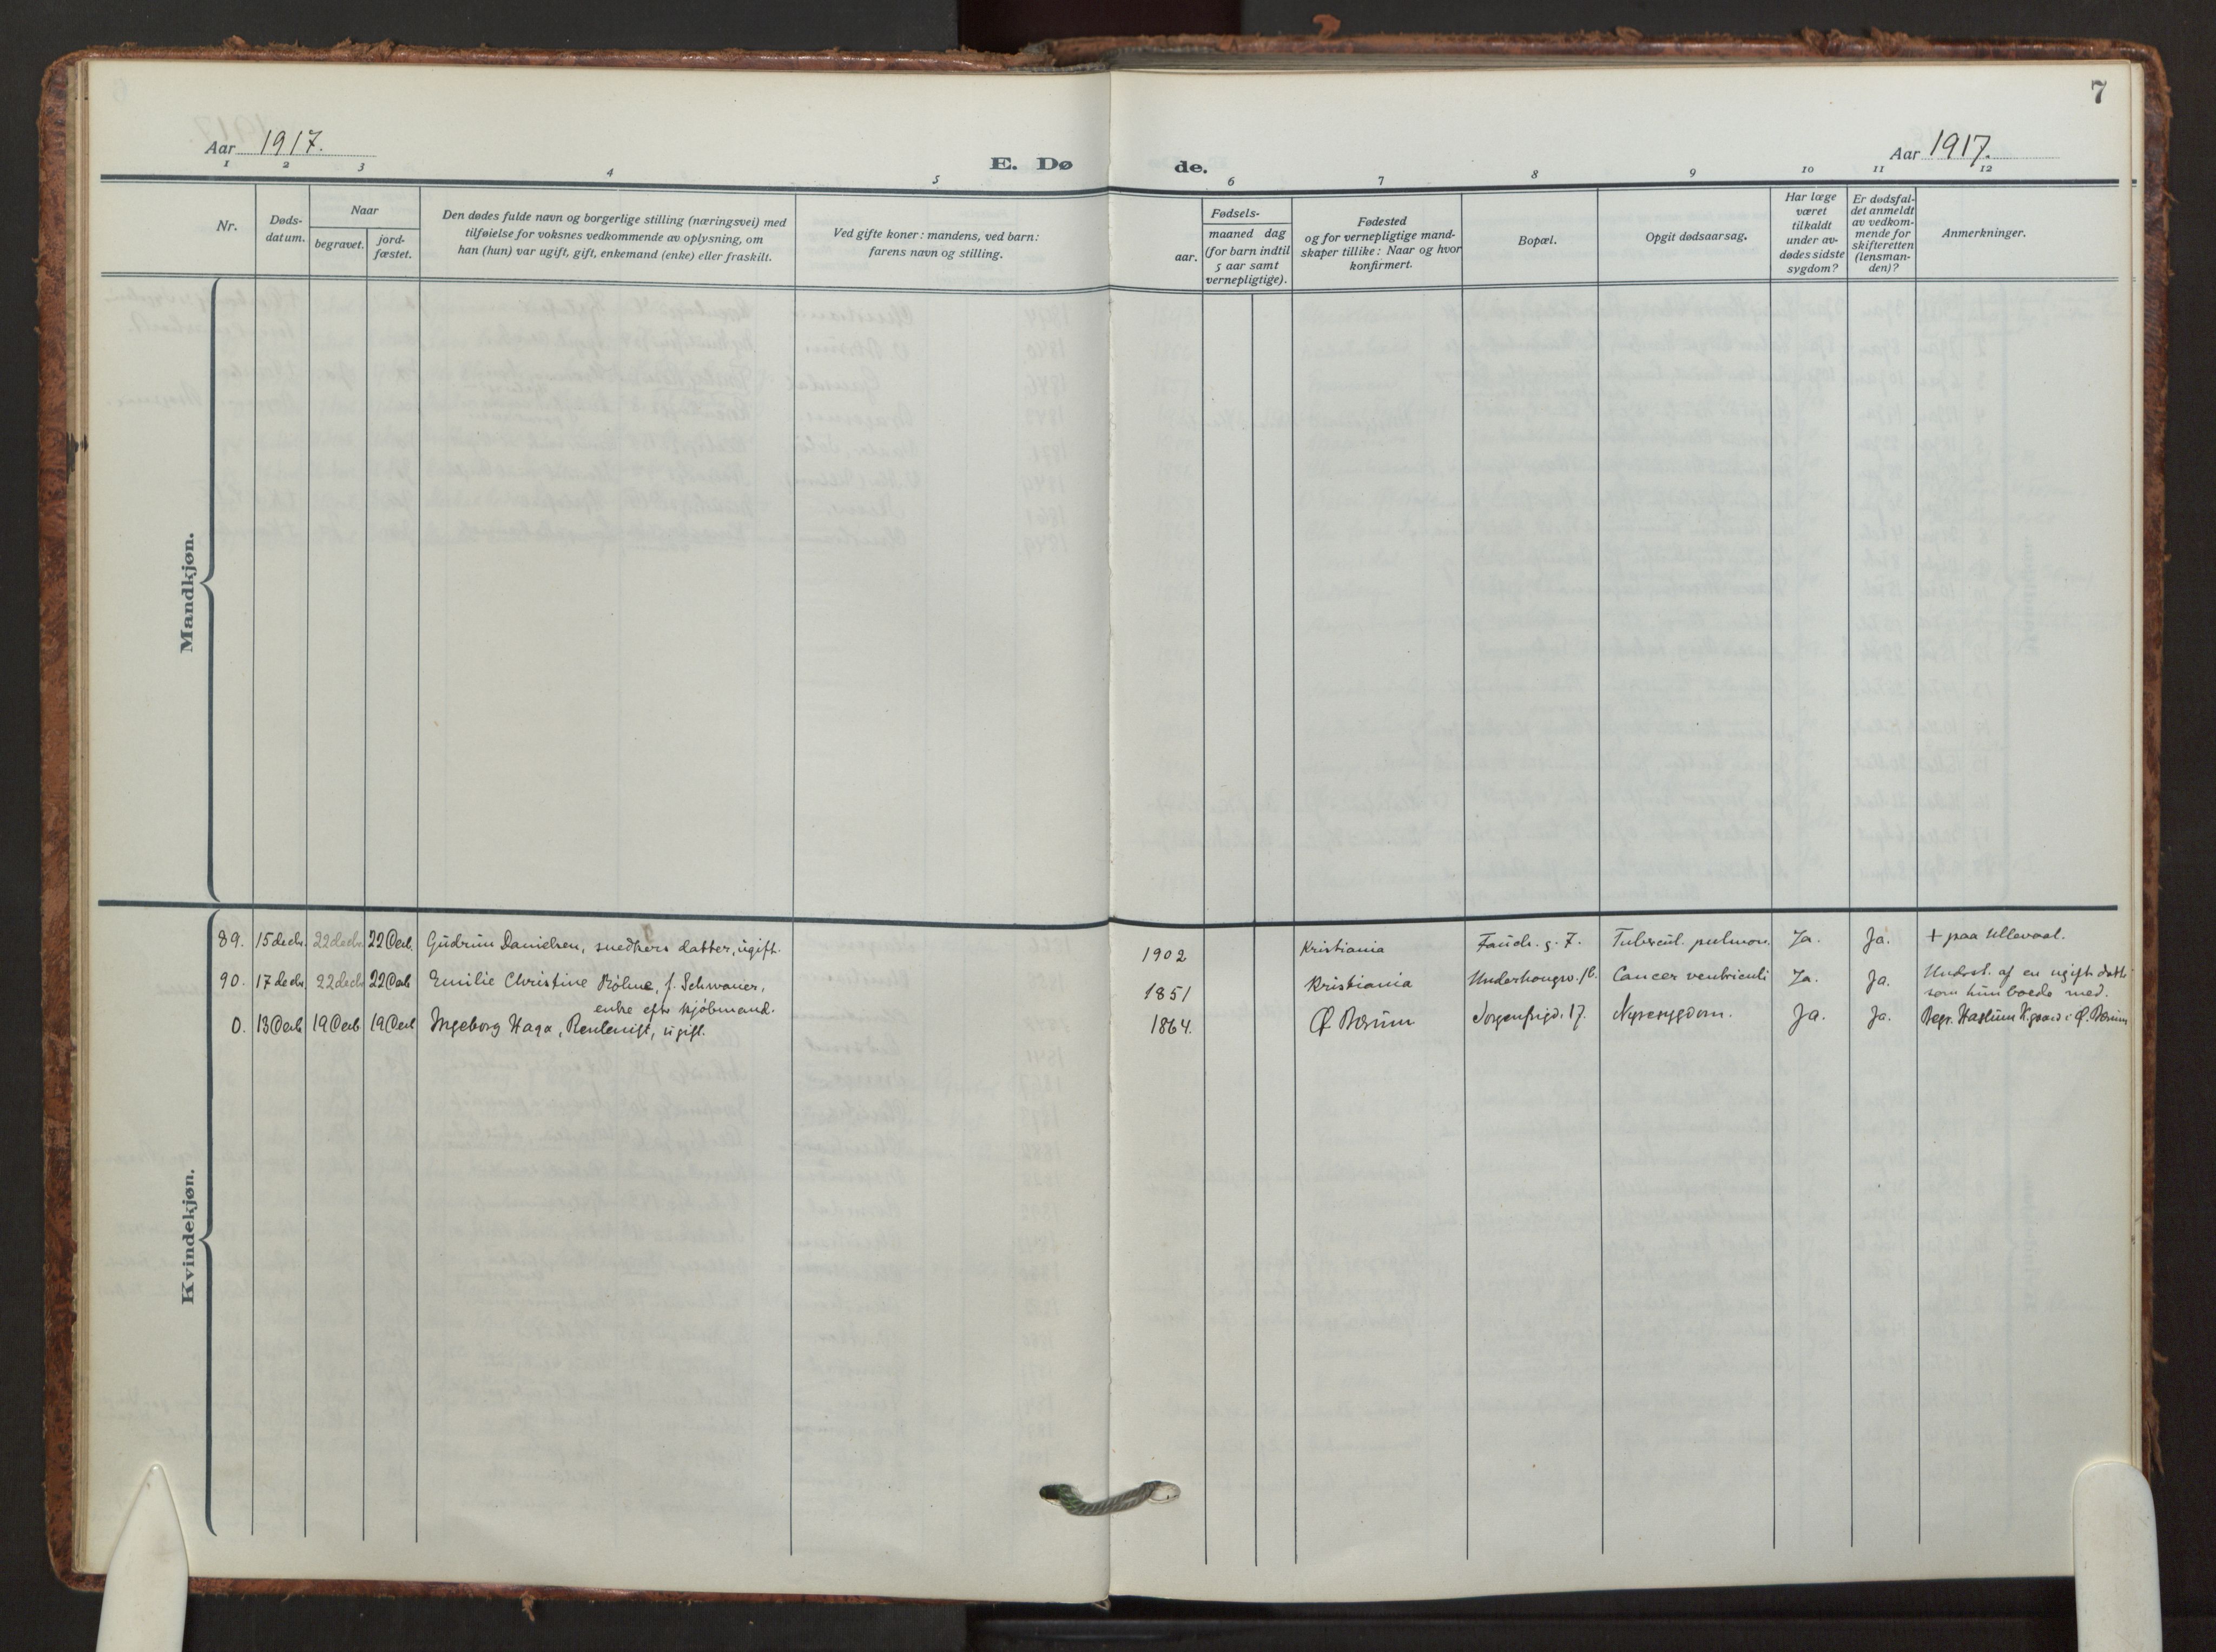 7
Aar 1917.
E. Døde.
Aar 1917.
1 2 3 4 5 6 7 8 9 10 11 12
Nr.
Døds-
datum.
Naar
begravet.
jord-
fæstet.
Den dødes fulde navn og borgerlige stilling (næringsvei) med
tilføielse for voksnes vedkommende av oplysning, om
han (hun) var ugift, gift, enkemand (enke) eller fraskilt.
Ved gifte koner: mandens, ved barn:
farens navn og stilling.
Fødsels-
aar.
maaned dag
(for barn indtil
5 aar samt
vernepligtige).
Fødested
og for vernepligtige mand-
skaper tillike: Naar og hvor
konfirmert.
Bopæl.
Opgit dødsaarsag.
Har læge
været
tilkaldt
under av-
dødes sidste
sygdom?
Er dødsfal-
det anmeldt
av vedkom-
mende for
skifteretten
(lensman-
den)?
Anmerkninger.
Mandkjøn.
Kvindekjøn.
89. 15 decbr. 22 decbr. 22 Decb. Gudrun Danielsen, snedkers datter, ugift. 1902 Kristiania 7. Tubercul. pulmon. Ja. Ja. + paa Ullevaal.
90. 17 decbr. 22 decbr. 22 Decb. Emilie Christine Böhme, f. Schwaner, 1851 Kristiania Cancer ventriculi Ja. Ja. af en ugift datter
enke efter kjøbmand. som hun boede med.
0. 13 Decb. 19 Decb. 19 Decb. Ingeborg Haga, Rentenist, ugift. 1864. Ø. Bærum Sorgenfrigd. 17. Nyresygdom. Ja. Ja. Begr. Haslum K.gaard i Ø. Bærum